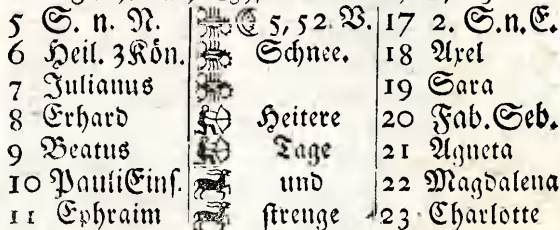 5 S. n. N. ☾ 5, 52. V. 17 2. S.n.E.
6 Heil. 3 Kön. Schnee. 18 Axel
7 Julianus 19 Sara
8 Erhard Heitere 20 Fab. Seb.
9 Beatus Tage 21 Agneta
10 Pauli Eins. und 22 Magdalena
11 Ephraim strenge 23 Charlotte